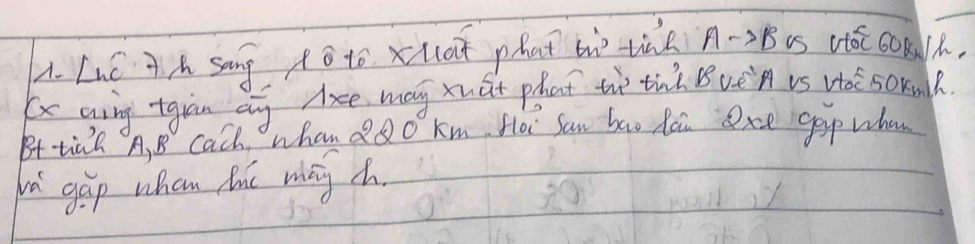 1. Lúc 7h sáng 1 ô tô xuất phát từ tỉnh A->B vs vtốc 60km/h.
Cx cùng tgian ấy 1xe máy xuất phát từ tỉnh B về A vs vtốc 50km/h.
Bt tỉnh A,B cách nhau 220 km. Hỏi sau bao lâu 2xe gặp nhau
và gặp nhau lúc mấy h.